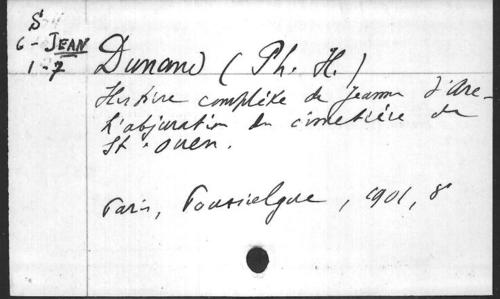 S
6 - JEAN
1 - 7
Dunand (Ph. H.)
Histoire complète de Jeanne d'Arc -
L'abjuration du cimetière de
St. Ouen.
Paris, Poussielgue, 1901, 8°